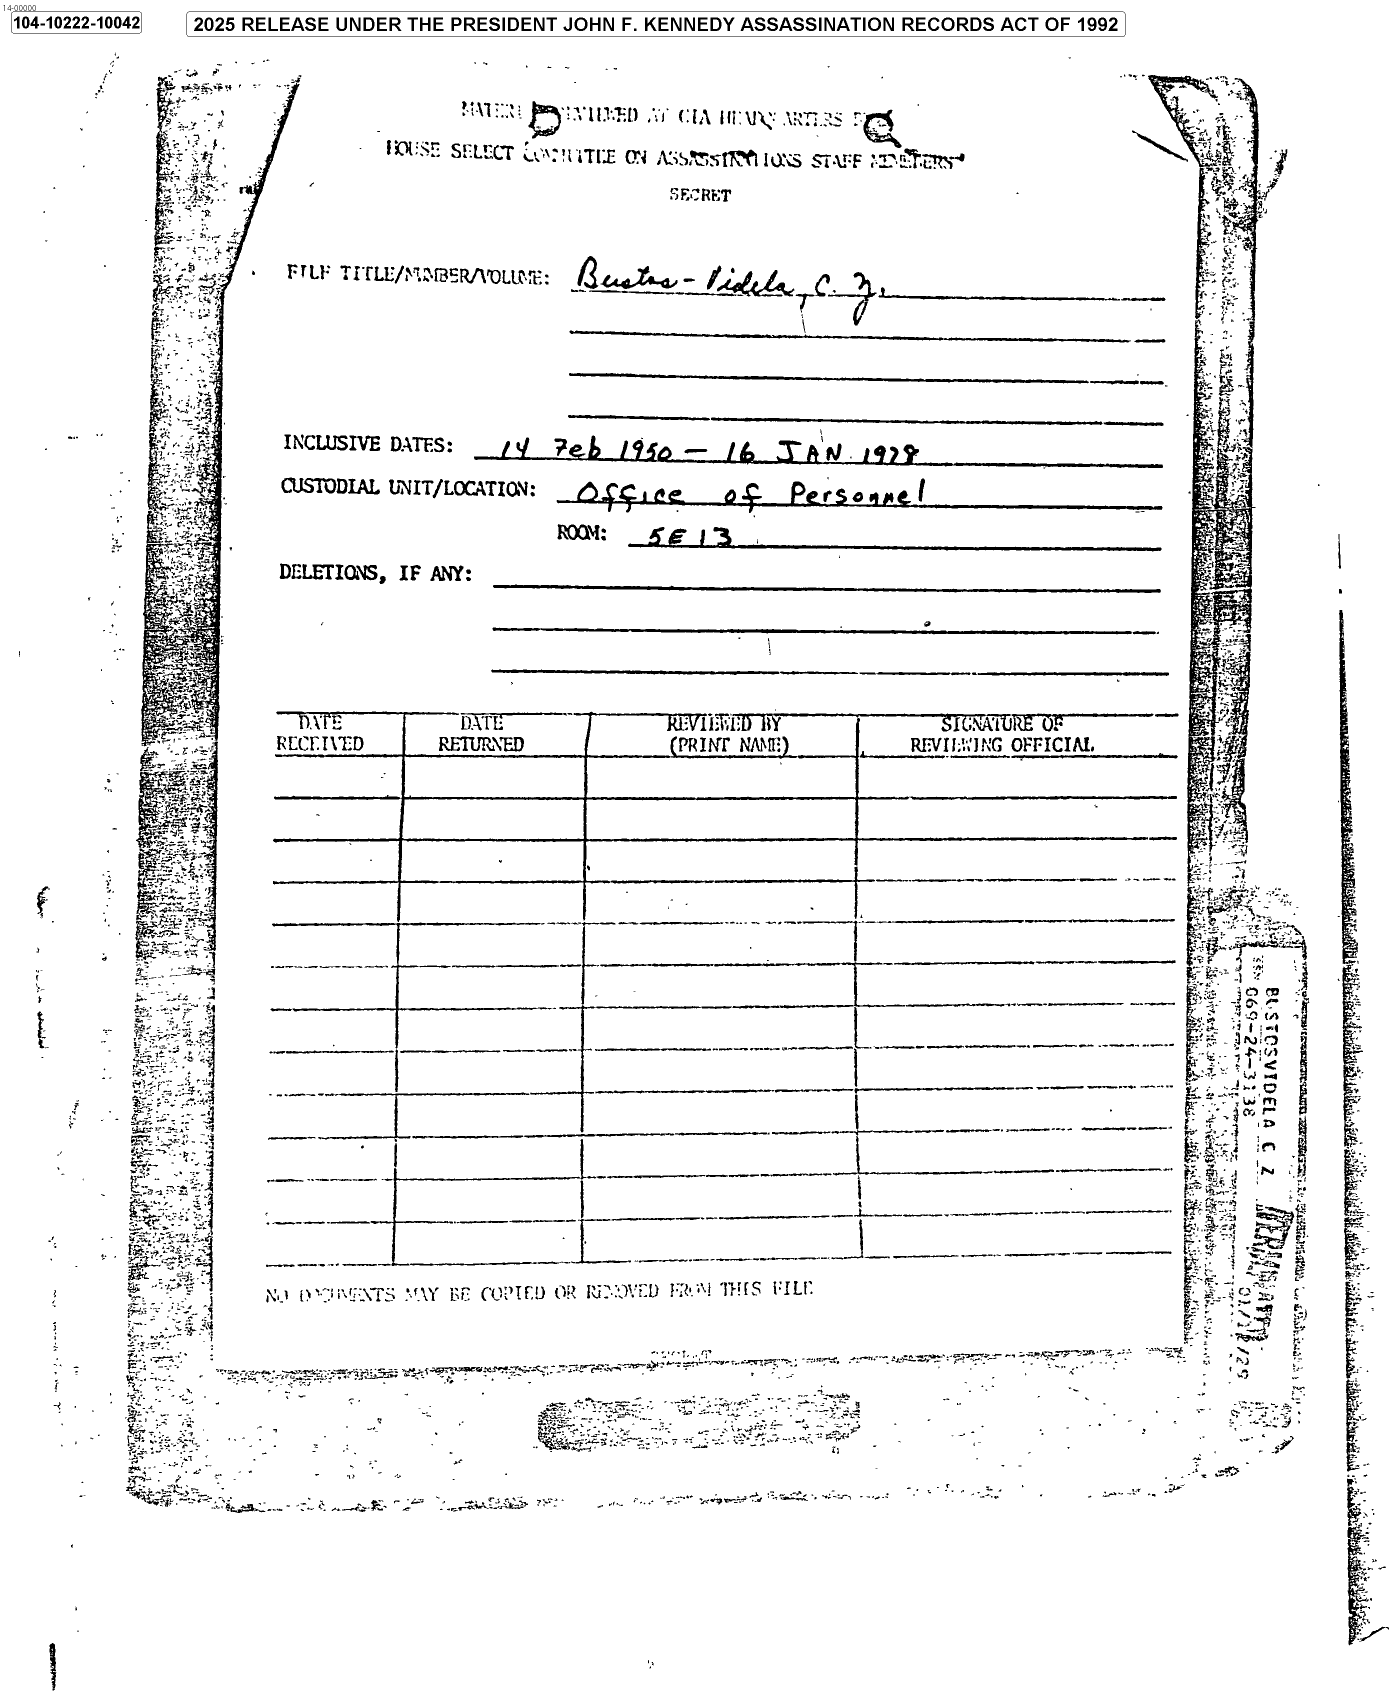 14-00000
104-10222-10042
2025 RELEASE UNDER THE PRESIDENT JOHN F. KENNEDY ASSASSINATION RECORDS ACT OF 1992
AT CIA HEADQUARTERS
HOUSE SELECT COMMITTEE ON ASSASSINATIONS STAFF MEMBERS
SECRET
FILE TITLE/NUMBER/VOLUME: Bustos-Videla, C. Z.
INCLUSIVE DATES: 14 Feb 1950 — 16 JAN 1978
CUSTODIAL UNIT/LOCATION: Office of Personnel
ROOM: 5E13
DELETIONS, IF ANY:
DATE RECEIVED
DATE RETURNED
REVIEWED BY (PRINT NAME)
SIGNATURE OF REVIEWING OFFICIAL
NO DOCUMENTS MAY BE COPIED OR REMOVED FROM THIS FILE
SECRET
BUSTOSVIDELA C Z
069-24-3138